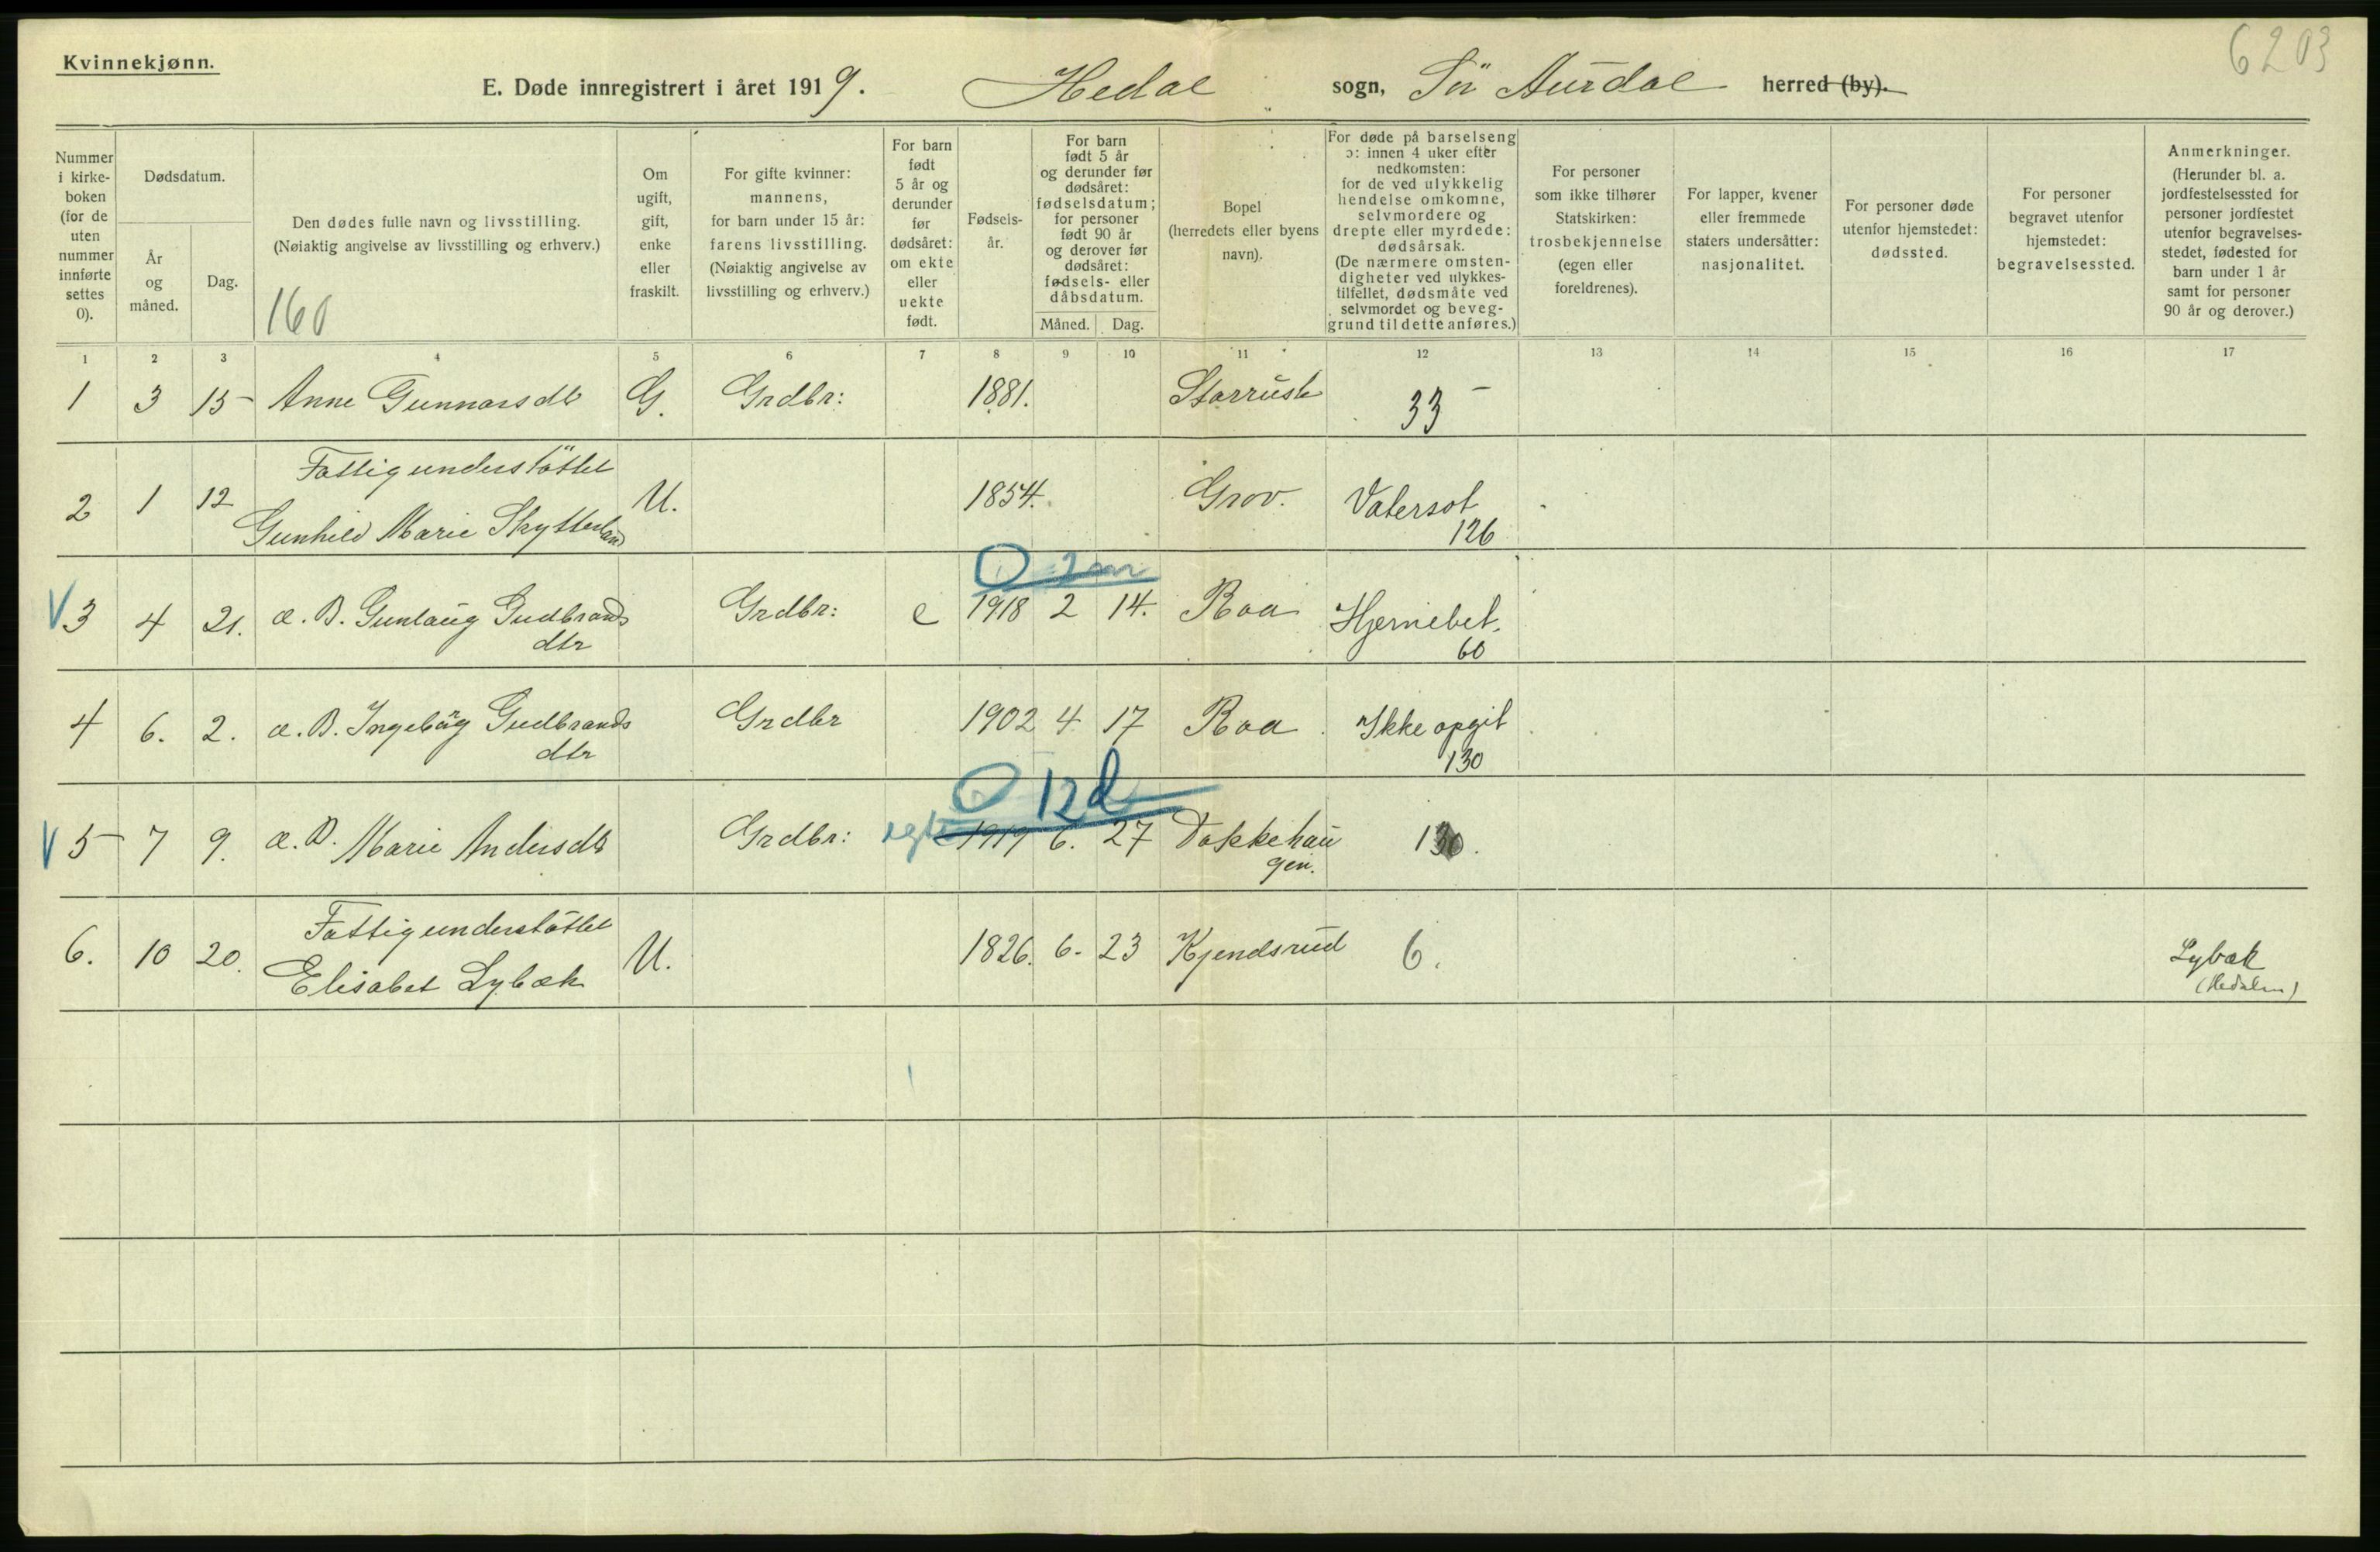 6203
Kvinnekjønn.
E. Døde innregistrert i året 1919. Hedal sogn, Sör Aurdal herred (by).
Nummer i kirke-boken (for de uten nummer innførte settes 0).
Dødsdatum.
År og måned.
Dag.
Den dødes fulle navn og livsstilling.
(Nøiaktig angivelse av livsstilling og erhverv.)
160
Om ugift, gift, enke eller fraskilt.
For gifte kvinner: mannens, for barn under 15 år: farens livsstilling. (Nøiaktig angivelse av livsstilling og erhverv.)
For barn født 5 år og derunder før dødsåret: om ekte eller uekte født.
Fødsels-år.
For barn født 5 år og derunder før dødsåret: fødselsdatum; for personer født 90 år og derover før dødsåret: fødsels- eller dåbsdatum.
Måned. Dag.
Bopel (herredets eller byens navn).
For døde på barselseng ɔ: innen 4 uker efter nedkomsten: for de ved ulykkelig hendelse omkomne, selvmordere og drepte eller myrdede: dødsårsak. (De nærmere omsten-digheter ved ulykkes-tilfellet, dødsmåte ved selvmordet og beveg-grund til dette anføres.)
For personer som ikke tilhører Statskirken: trosbekjennelse (egen eller foreldrenes).
For lapper, kvener eller fremmede staters undersåtter: nasjonalitet.
For personer døde utenfor hjemstedet: dødssted.
For personer begravet utenfor hjemstedet: begravelsessted.
Anmerkninger. (Herunder bl. a. jordfestelsessted for personer jordfestet utenfor begravelses-stedet, fødested for barn under 1 år samt for personer 90 år og derover.)
1 2 3 4 5 6 7 8 9 10 11 12 13 14 15 16 17
1 3 15 Anne Gunnarsdtr G. Grdbr: 1881. Storrust 33
Fattigunderstöttet
2 1 12 Gunhild Marie Skytterland U. 1854. Grov. Vatersot
126
O 2 m
V 3 4 21. a. B. Gunlaug Gudbrands Grdbr: e 1918 2 14. Roa Hjernebet.
dtr 60
4 6. 2. a. B. Ingeborg Gudbrands Grdbr 1902 4 17 Roa Ikke opgit
dtr 130
O 12 d
V 5 7 9. a. B. Marie Andersdtr Grdbr: egte 1919 6. 27 Dokkehau 130.
gen.
Fattigunderstöttet
6. 10 20. Elisabet Lybæk U. 1826. 6. 23 Kjendsrud 6. Lybæk
(Hedalen)